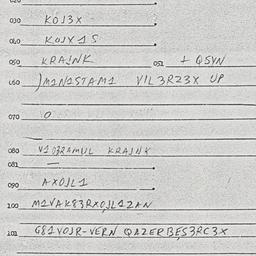 030 KOJ3X
040 KOJX1S
050 KRAJNK 051 + QSYN
060 )M1N1STAM1 V1L3RZ3X UP
070 O
080 V1OZRAMUL KRAJNK
081 —
090 AXOJL1
100 M1VAK83RXOJL1ZAN
101 G81VOJR-VERN QAZERBES3RC3X